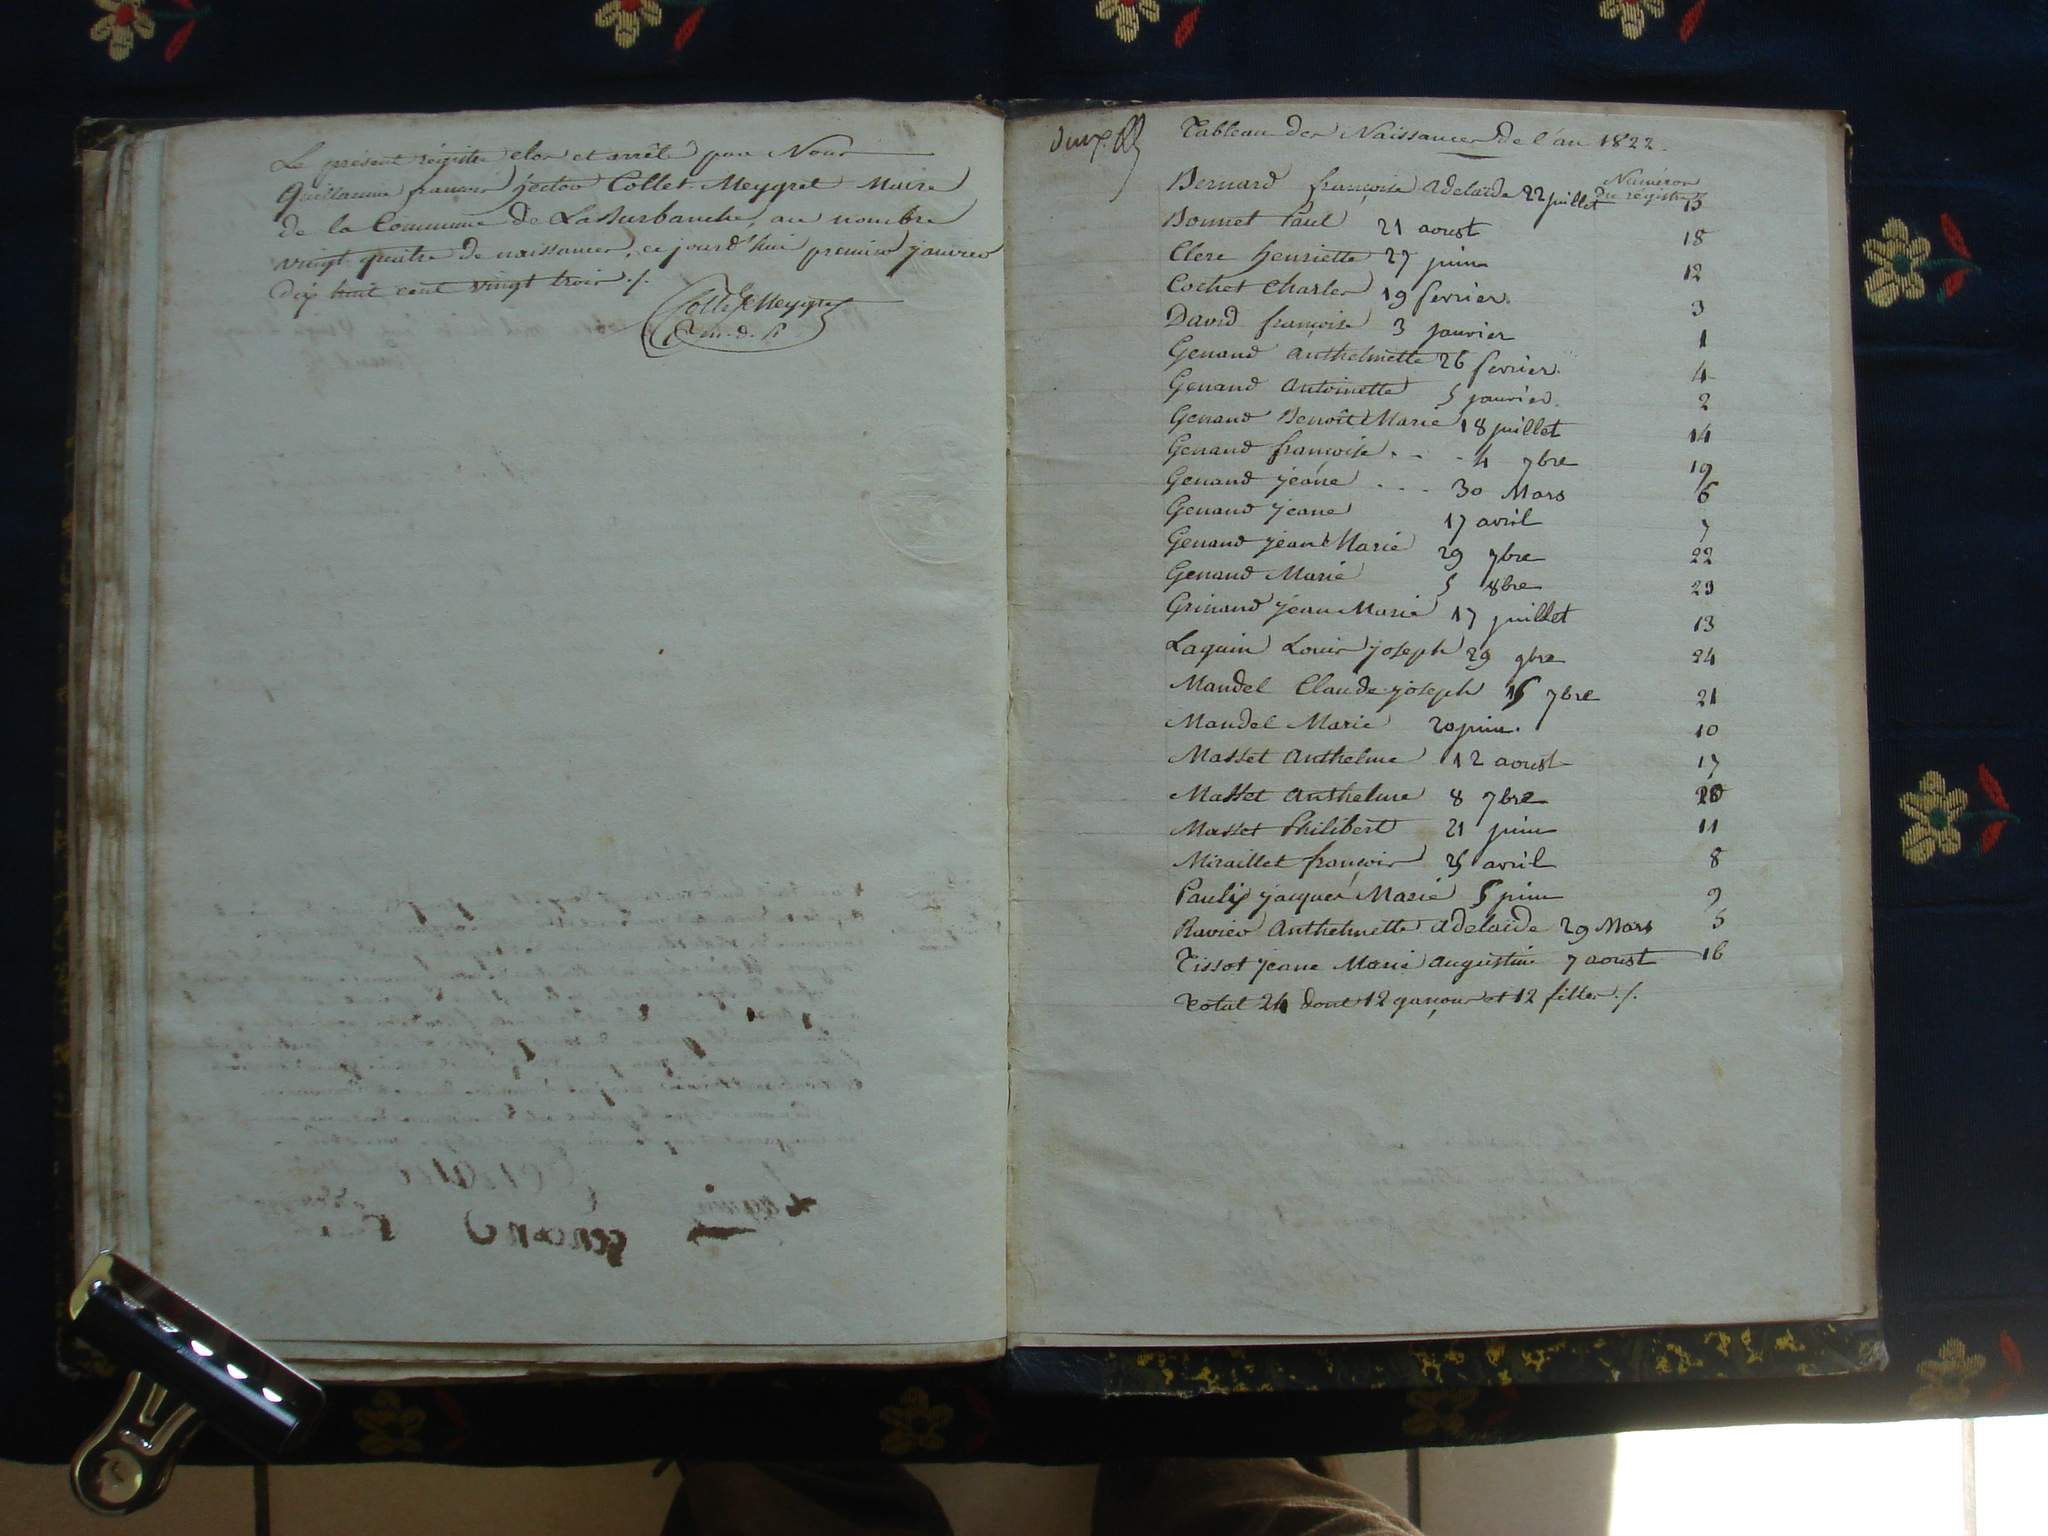 Le présent régistre clos et arrêté par Nous
Guillaume françois hector Collet-Meygret Maire
de la Commune de Lasburbanche, au nombre
vingt quatre de naissances, ce jourd'hui premier janvier
dix huit cent vingt trois ./.
Collet Meygret
Tableau des Naissances de l'an 1822.
Numéros
du régistre
Bernard françoise adelaïde 22 juillet 15
Bonnet Paul 21 aoust 18
Clere henriette 27 juin 12
Cochet Charles 19 fevrier. 3
David françoise 3 janvier 1
Genand anthelmette 26 fevrier. 4
Genand antoinette 5 janvier. 2
Genand Benoît Marie 18 juillet 14
Genand françoise . - - 4 7bre 19
Genand jeane . . - 30 Mars 6
Genand jeane 17 avril 7
Genand jean Marie 29 7bre 22
Genand Marie 5 8bre 23
Grinand jean Marie 17 juillet 13
Laguin Louis joseph 29 9bre 24
Mandel Claude joseph 15 7bre 21
Mandel Marie 20 juin. 10
Masset Anthelme 12 aoust 17
Masset anthelme 8 7bre 20
Masset Philibert 21 juin 11
Miraillet françois 25 avril 8
Pauly jacques Marie 5 juin 9
Ravier Anthelmette adelaïde 29 Mars 5
Tissot jeane Marie augustine 7 aoust 16
Total 24 dont 12 garçons et 12 filles ./.